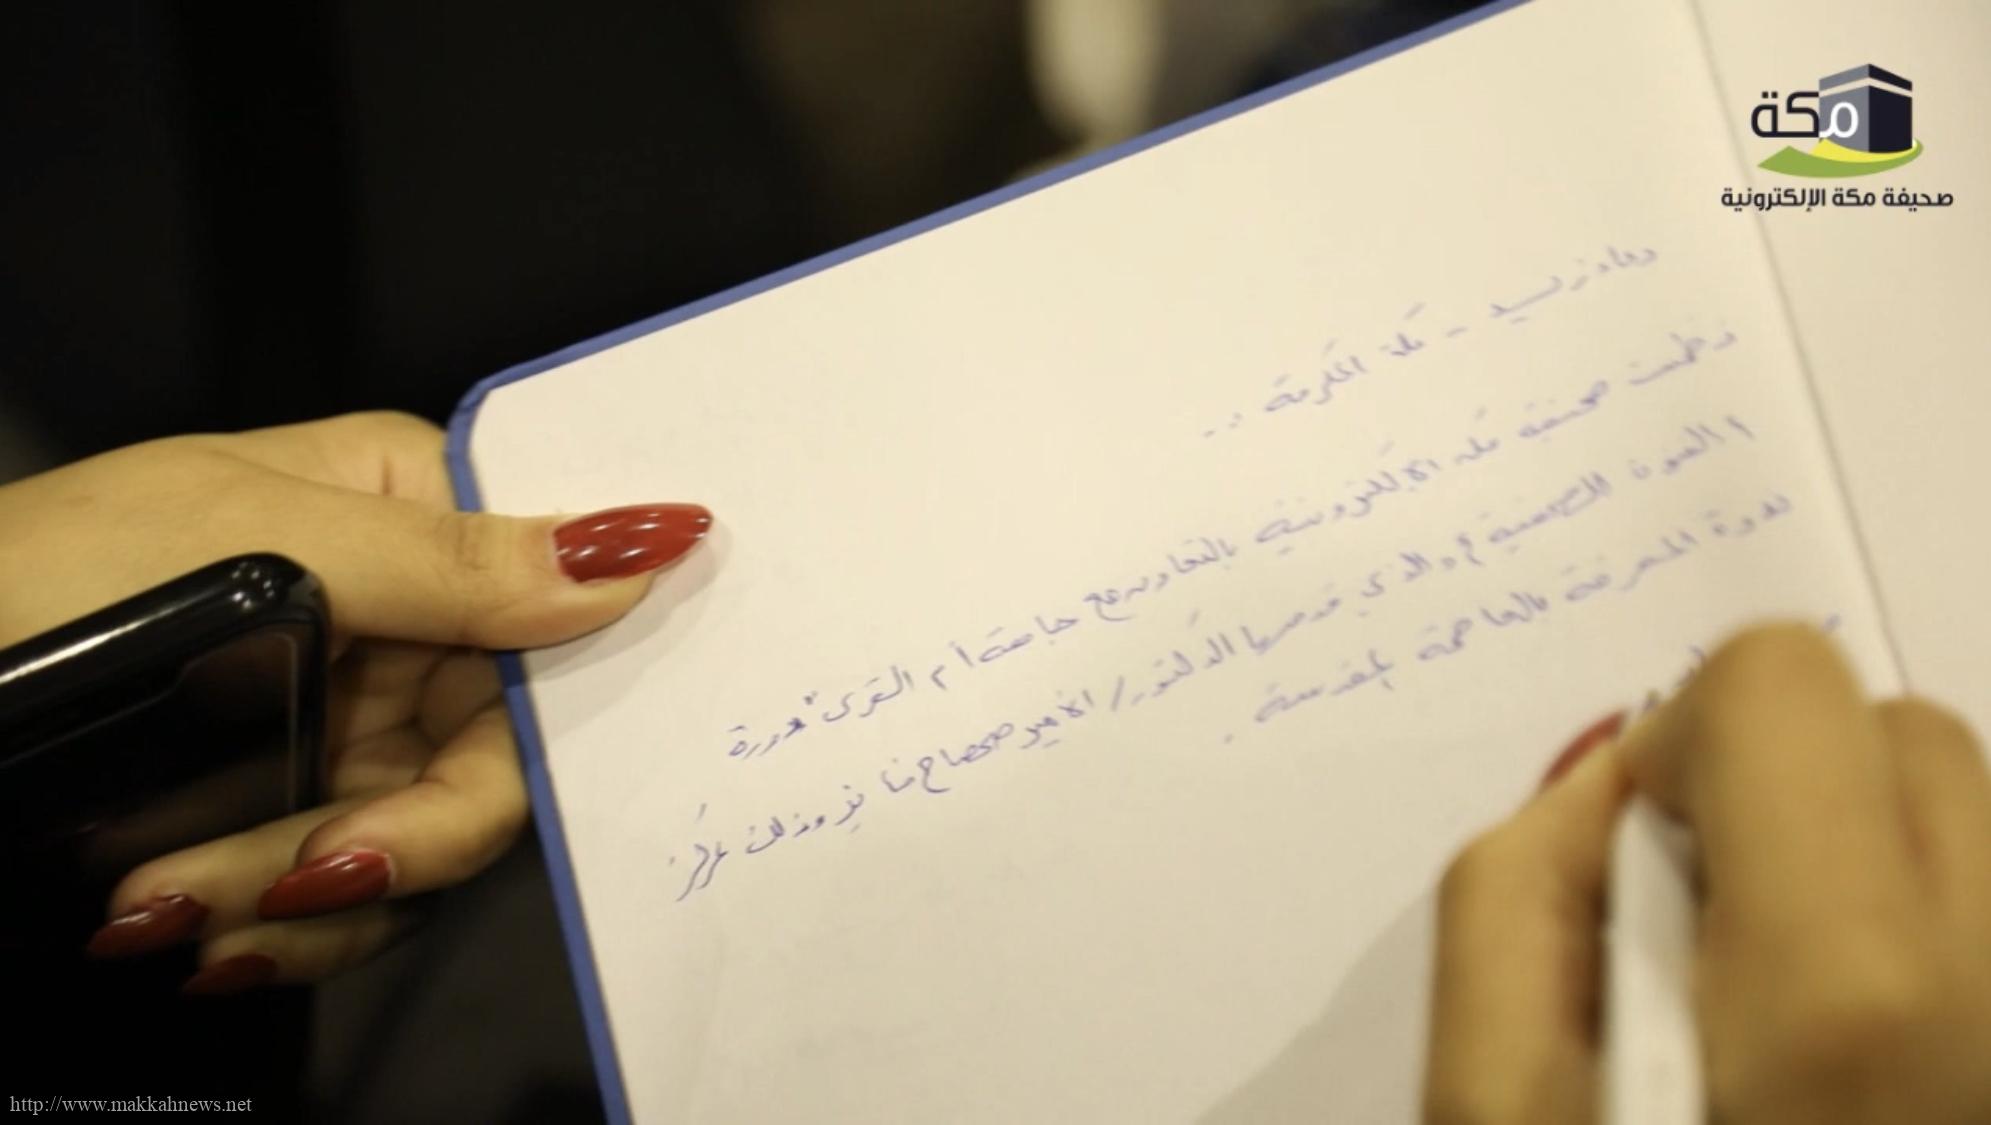 مكة
صحيفة مكة الإلكترونية
مكة المكرمة ..
نظمت صحيفة مكة الإلكترونية بالتعاون مع جامعة أم القرى "دورة
الصورة الصحفية" والذي قدمها الدكتور/ الأمير صحصاح فايز وذلك بمركز
المعرفة بالعاصمة المقدسة.
http://www.makkahnews.net